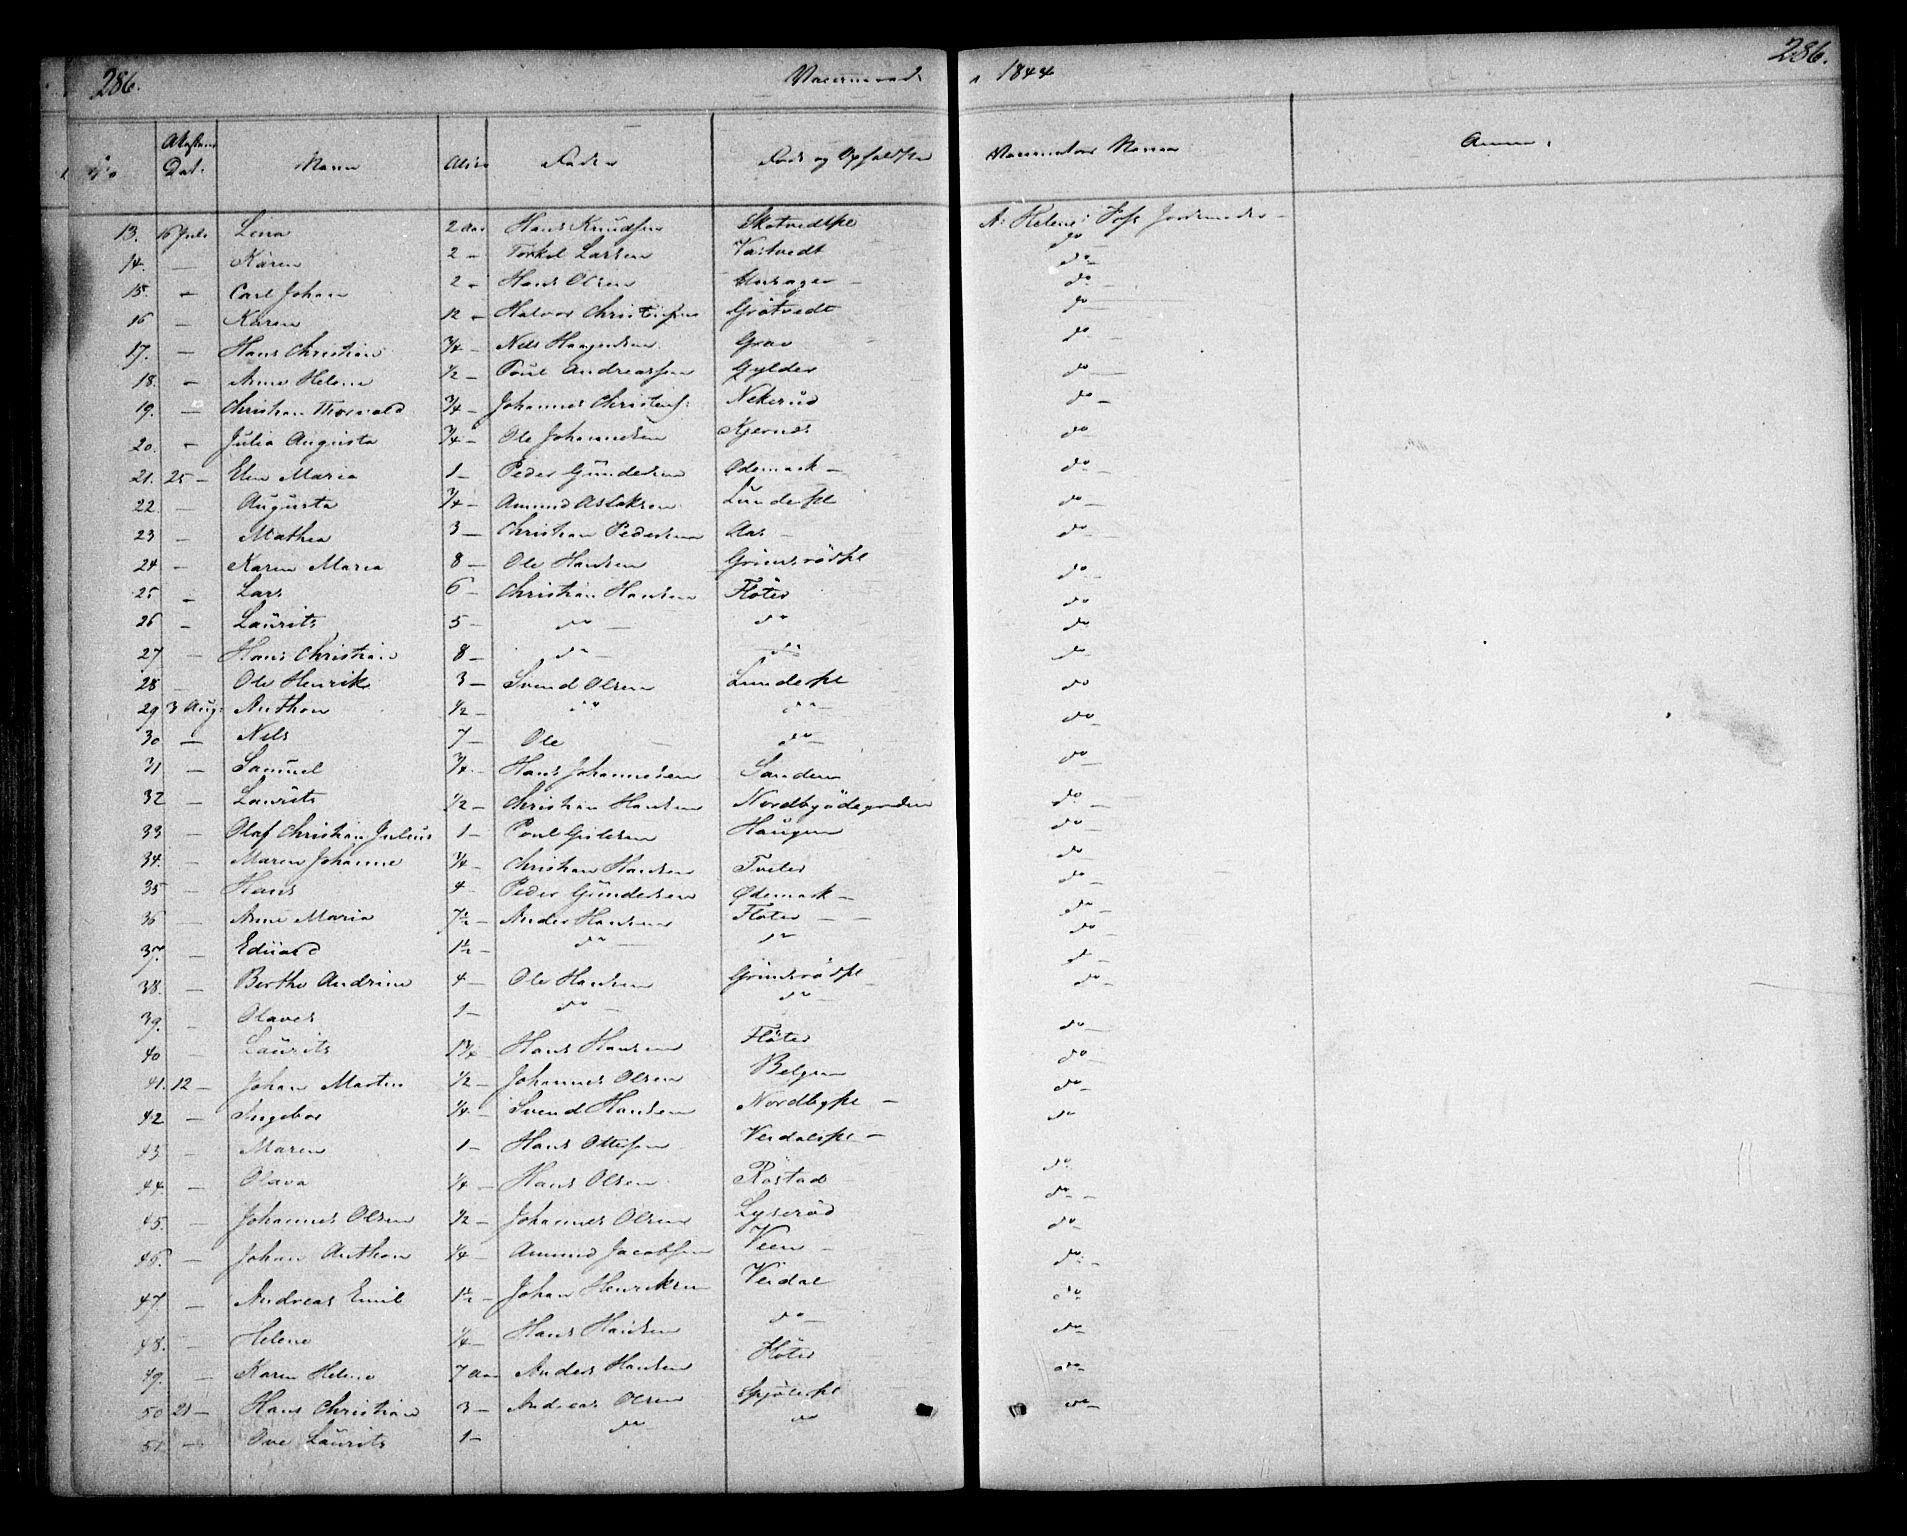 286. Vaccinerede 1844 286.
No Attestens Dat. Navn Alder Fader Føde og Opholdssted Vaccinators Navn Anm:
13. 16 Juli Lina 2 Aar Hans Knudsen Skotvedtpl A: Helene Foss Jordemoder
14. — Karen 2 — Torkel Larsen Vastvedt do
15. — Carl Johan 2 — Hans Olsen do
16 — Karen 12 — Halvor Christensen Gråtvedt do
17. — Hans Christian 3/4 — Nils Haagensen Grav do
18. — Anne Helene 1/2 — Poul Andreassen Gylder do
19. — Christian Thorvald 3/4 — Johannes Christens: Nekerüd do
20. — Julia Augusta 3/4 — Ole Johannesen Kjernes do
21. 25 — Elen Maria 1 — Peder Gündersen Ødemark — do
22 — Augusta 3/4 — Amund Aslaksen Lundepl do
23 — Mathea 3 — Christian Pedersen Aas — do
24 — Karen Maria 8 — Ole Hansen Grimsrödpl do
25 — Lars 6 — Christian Hansen Flöter do
26 — Laürits 5 — do — do do
27 — Hans Christian 8 — do — do do
28 — Ole Henrik 3 — Svend Olsen Lundepl do
29 3 Aug: Anthon 1/2 — do do — do
30 — Nils 7 — Ole — do — do
31 — Samüel 3/4 — Hans Johannesen Sanden do
32 — Laurits 1/2 — Christian Hansen Nordbyödegarden do
33 — Olaf Christian Julius 1 — Poul Gulsen Haügen do
34. — Maren Johanne 3/4 — Christian Hansen Tveter do
35 — Hans 4 — Peder Gündersen Ødemark — do
36 — Anne Maria 7 1/2 — Anders Hansen Flöter — do
37. — Edüard 1 1/2 — do — do do
38. — Berthe Andrine 4 — Ole Hansen Grimsrödpl do
39. — Olaves 1 — do — do — do
40 — Laürits 1 3/4 — Hans Hansen Flöter do
41. 12 — Johan Martin 1/2 — Johannes Olsen Belgen do
42 — Ingebor 1/4 — Svend Hansen Nordbypl — do
43 — Maren 1 — Hans Ottesen Veidalspl — do
44. — Olava 1/4 — Hans Olsen Röstad do
45. — Johannes Olsen 1/2 — Johannes Olsen Lyseröd do
46. — Johan Anthon 1/4 — Amund Jacobsen Veen — do
47. — Andreas Emil 1 1/2 — Johan Henriksen Veidal do
48. — Helene 1/4 — Hans Hansen do — do
49. — Karen Helene 7 Aar Anders Hansen Flöter do
50 21 — Hans Christian 3 — Andreas Olsen Spjölepl do
51. — Ove Laürits 1 — do do